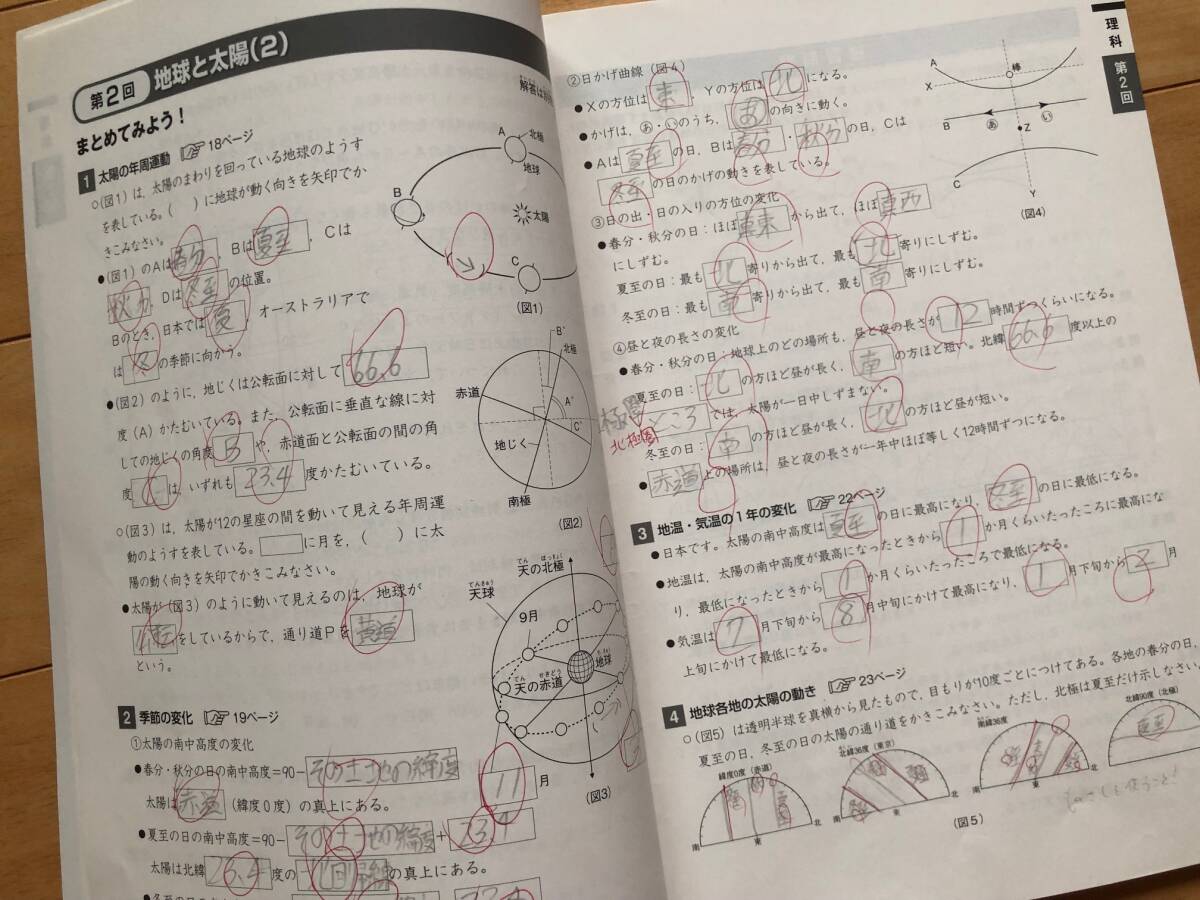 第2回 地球と太陽(2)
解答は
まとめてみよう！
1 太陽の年周運動 18ページ
○(図1)は、太陽のまわりを回っている地球のようす
を表している。( )に地球が動く向きを矢印でか
きこみなさい。
●(図1)のAは春分 Bは夏至，Cは
秋分 Dは冬至の位置。
日のとき，日本では夏 オーストラリアで
は冬の季節に向かう。
●(図2)のように，地じくは公転面に対して66.6
度(A)かたむいている。また，公転面に垂直な線に対
しての地じくの角度Bや，赤道面と公転面の間の角
度Cは，いずれも23.4度かたむいている。
○(図3)は，太陽が12の星座の間を動いて見える年周運
動のようすを表している。 に月を，( )に太
陽の動く向きを矢印でかきこみなさい。
●太陽が(図3)のように動いて見えるのは，地球が
公転をしているからで，通り道Pを黄道
という。
2 季節の変化 19ページ
①太陽の南中高度の変化
●春分・秋分の日の南中高度＝90－その土地の緯度
太陽は赤道(緯度0度)の真上にある。
●夏至の日の南中高度＝90－その土地の緯度＋23.4
太陽は北緯23.4度の北回帰線の真上にある。
A
北極
地球
B
太陽
C
(図1)
B'
北極
赤道
A'
C'
地じく
南極
(図2)
天の北極
てんきゅう
天球
9月
地球
天の赤道
11月
(図3)
理科
第2回
②日かげ曲線(図4)
●Xの方位は東，Yの方位は北になる。
●かげは，あ・いのうち，あの向きに動く。
●Aは夏至の日，Bは春分・秋分の日，Cは
冬至の日のかげの動きを表している。
A
X
棒
B
あ
い
Z
C
Y
(図4)
③日の出・日の入りの方位の変化
●春分・秋分の日：ほぼ真東から出て，ほぼ真西
にしずむ。
夏至の日：最も北寄りから出て，最も北寄りにしずむ。
冬至の日：最も南寄りから出て，最も南寄りにしずむ。
④昼と夜の長さの変化
●春分・秋分の日：地球上のどの場所も，昼と夜の長さが12時間ずつくらいになる。
夏至の日：北の方ほど昼が長く，南の方ほど短い。北緯66.6度以上の
極圏 ところでは，太陽が一日中しずまない。
北極圏
冬至の日：南の方ほど昼が長く，北の方ほど昼が短い。
●赤道上の場所は，昼と夜の長さが一年中ほぼ等しく12時間ずつになる。
3 地温・気温の1年の変化 22ページ
●日本です。太陽の南中高度は夏至の日に最高になり，冬至の日に最低になる。
●地温は，太陽の南中高度が最高になったときから1か月くらいたったころに最高にな
り，最低になったときから1か月くらいたったころで最低になる。
●気温は7月下旬から8月中旬にかけて最高になり，1月下旬から2月
上旬にかけて最低になる。
4 地球各地の太陽の動き 23ページ
○(図5)は透明半球を真横から見たもので，目もりが10度ごとにつけてある。各地の春分の日，
夏至の日，冬至の日の太陽の通り道をかきこみなさい。ただし，北極は夏至だけ示しなさい。
緯度0度(赤道)
南
東
北
北緯36度(東京)
南
東
北
南緯36度
南
東
北
北緯90度(北極)
夏至
ものさしも使うこと！
(図5)